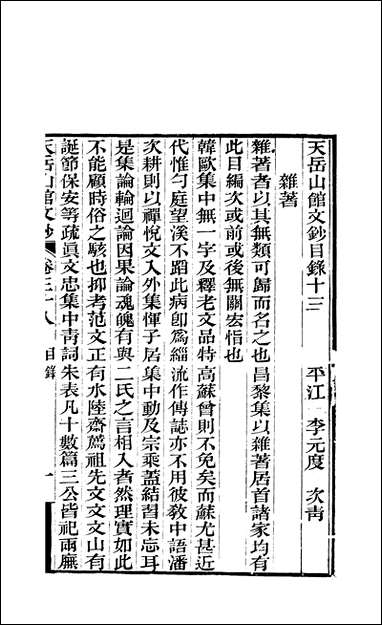 天岳山館文鈔目錄十三
平江　李元度　次青
雜著
雜著者以其無類可歸而名之也昌黎集以雜著居首諸家均有
此目編次或前或後無關宏恉也
韓歐集中無一字及釋老文品特高蘇曾則不免矣而蘇尤甚近
代惟勺庭望溪不蹈此病卽爲緇流作傳誌亦不用彼敎中語潘
次耕則以禪悅文入外集惲子居集中動及宗乘蓋結習未忘耳
是集論輪迴論因果論魂魄有與二氏之言相入者然理實如此
不能顧時俗之駭也抑考范文正有水陸齋爲祖先文文文山有
誕節保安等疏眞文忠集中靑詞朱表凡十數篇三公皆祀兩廡
天岳山館文鈔　卷三十八　目錄　一